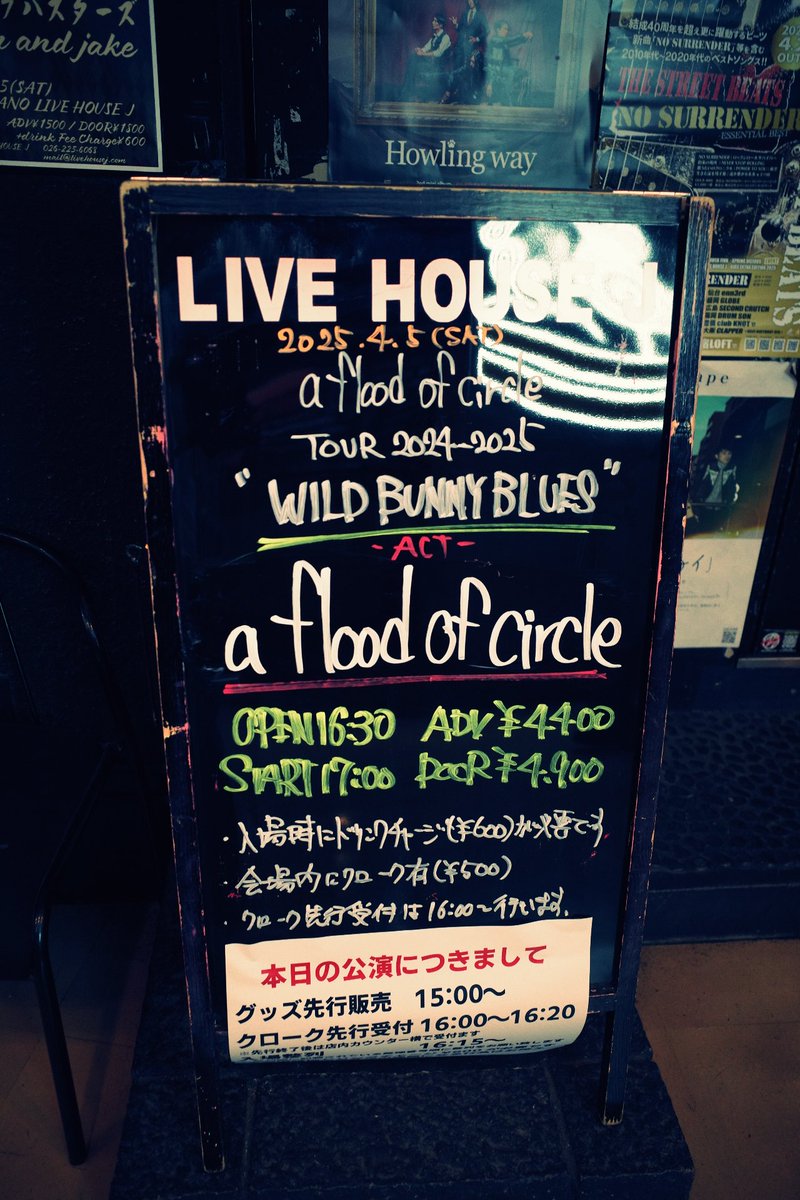 and jake
5(SAT)
ANO LIVE HOUSE J
ADV¥1500 / DOOR¥1500
+drink Fee Charge¥600
HOUSE J 026-225-6068
mail@livehousej.com
Howling way
結成40周年を超え更に躍動するビーツ
新曲「NO SURRENDER」等を含む
2010年代~2020年代のベストソングス!!
THE STREET BEATS
NO SURRENDER
ESSENTIAL BES
LIVE HOUSE J
2025.4.5(SAT)
a flood of circle
TOUR 2024-2025
"WILD BUNNY BLUES"
-ACT-
a flood of circle
OPEN16:30 ADV¥4400
START17:00 DOOR¥4.900
・入場時にドリンクチャージ(¥600)が必要です
・会場内にクローク有(¥500)
・クローク先行受付は16:00〜行います。
本日の公演につきまして
グッズ先行販売 15:00〜
クローク先行受付 16:00〜16:20
※先行終了後は店内カウンター横で受付ます
16:15〜